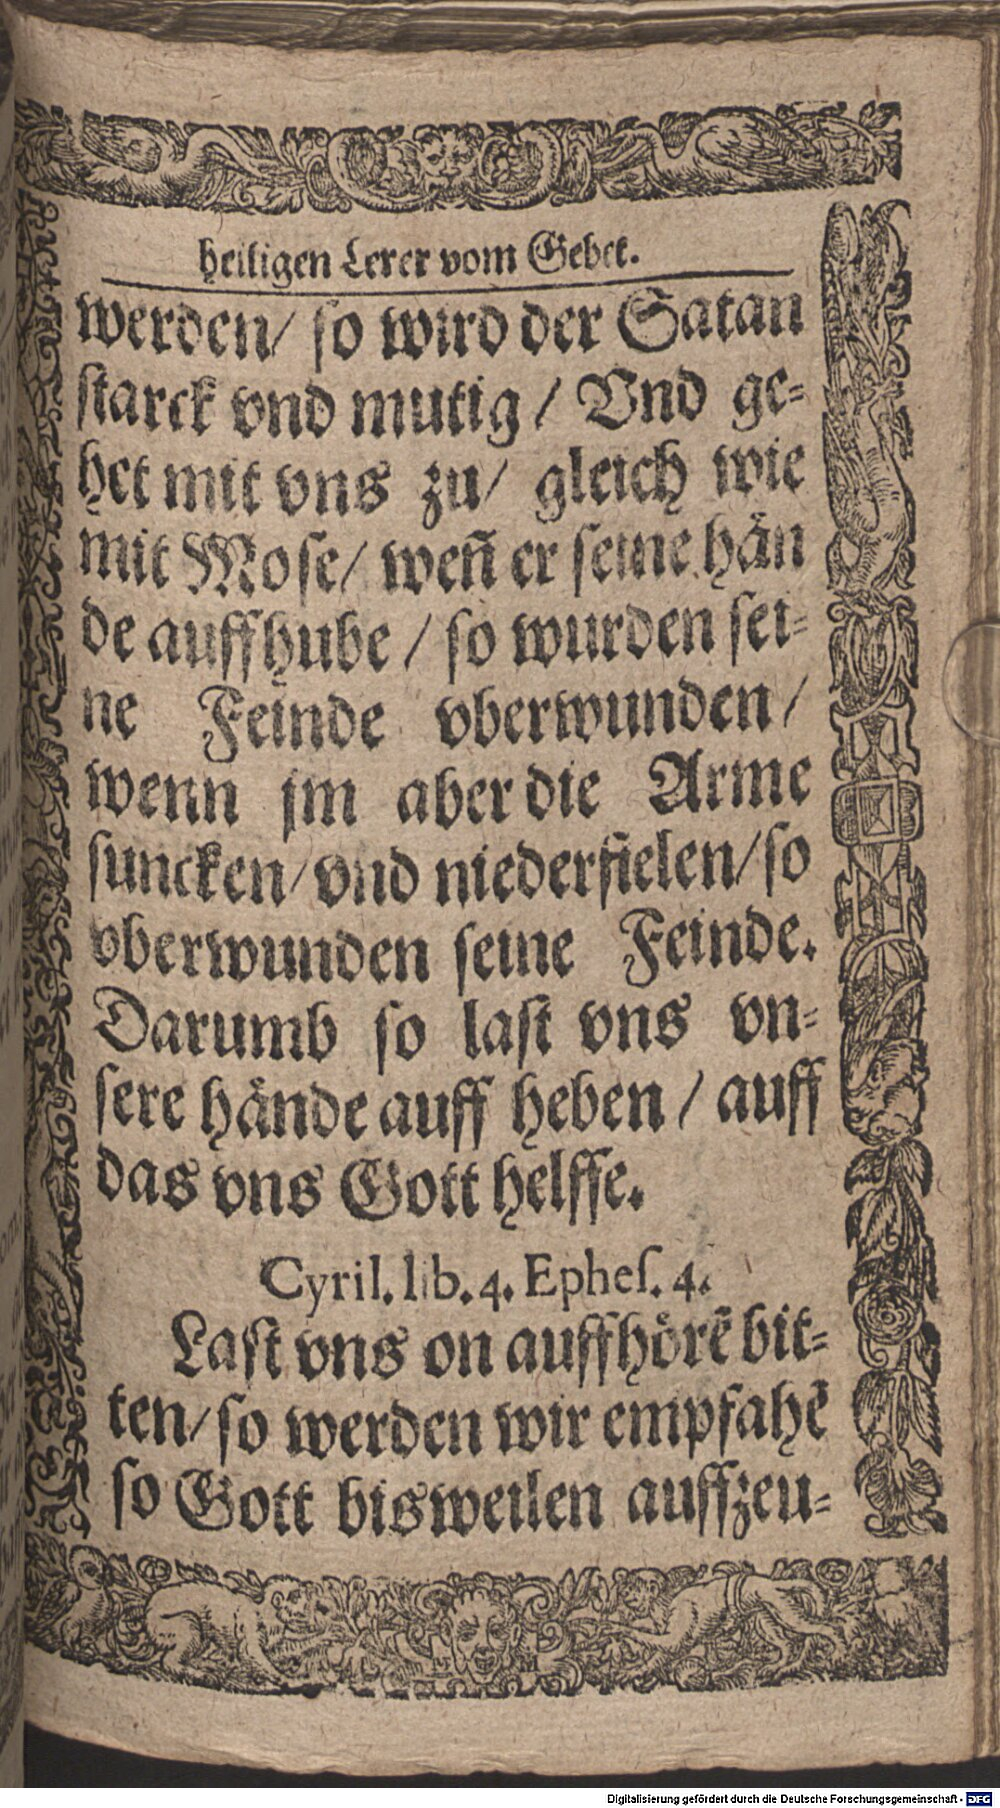 heiligen Lerer vom Gebet.
werden/ so wird der Satan
starck vnd mutig / Vnd ge-
het mit vns zu/ gleich wie
mit Mose/ weñ er seine hän
de auffhube / so wurden sei-
ne Feinde vberwunden/
wenn jm aber die Arme
suncken/ vnd niederfielen/ so
vberwunden seine Feinde.
Darumb so last vns vn-
sere hände auff heben / auff
das vns Gott helffe.
Cyril. lib. 4. Ephes. 4.
Last vns on auffhörẽ bit-
ten/ so werden wir empfahẽ
so Gott bisweilen auffzeu-
Digitalisierung gefördert durch die Deutsche Forschungsgemeinschaft - DFG